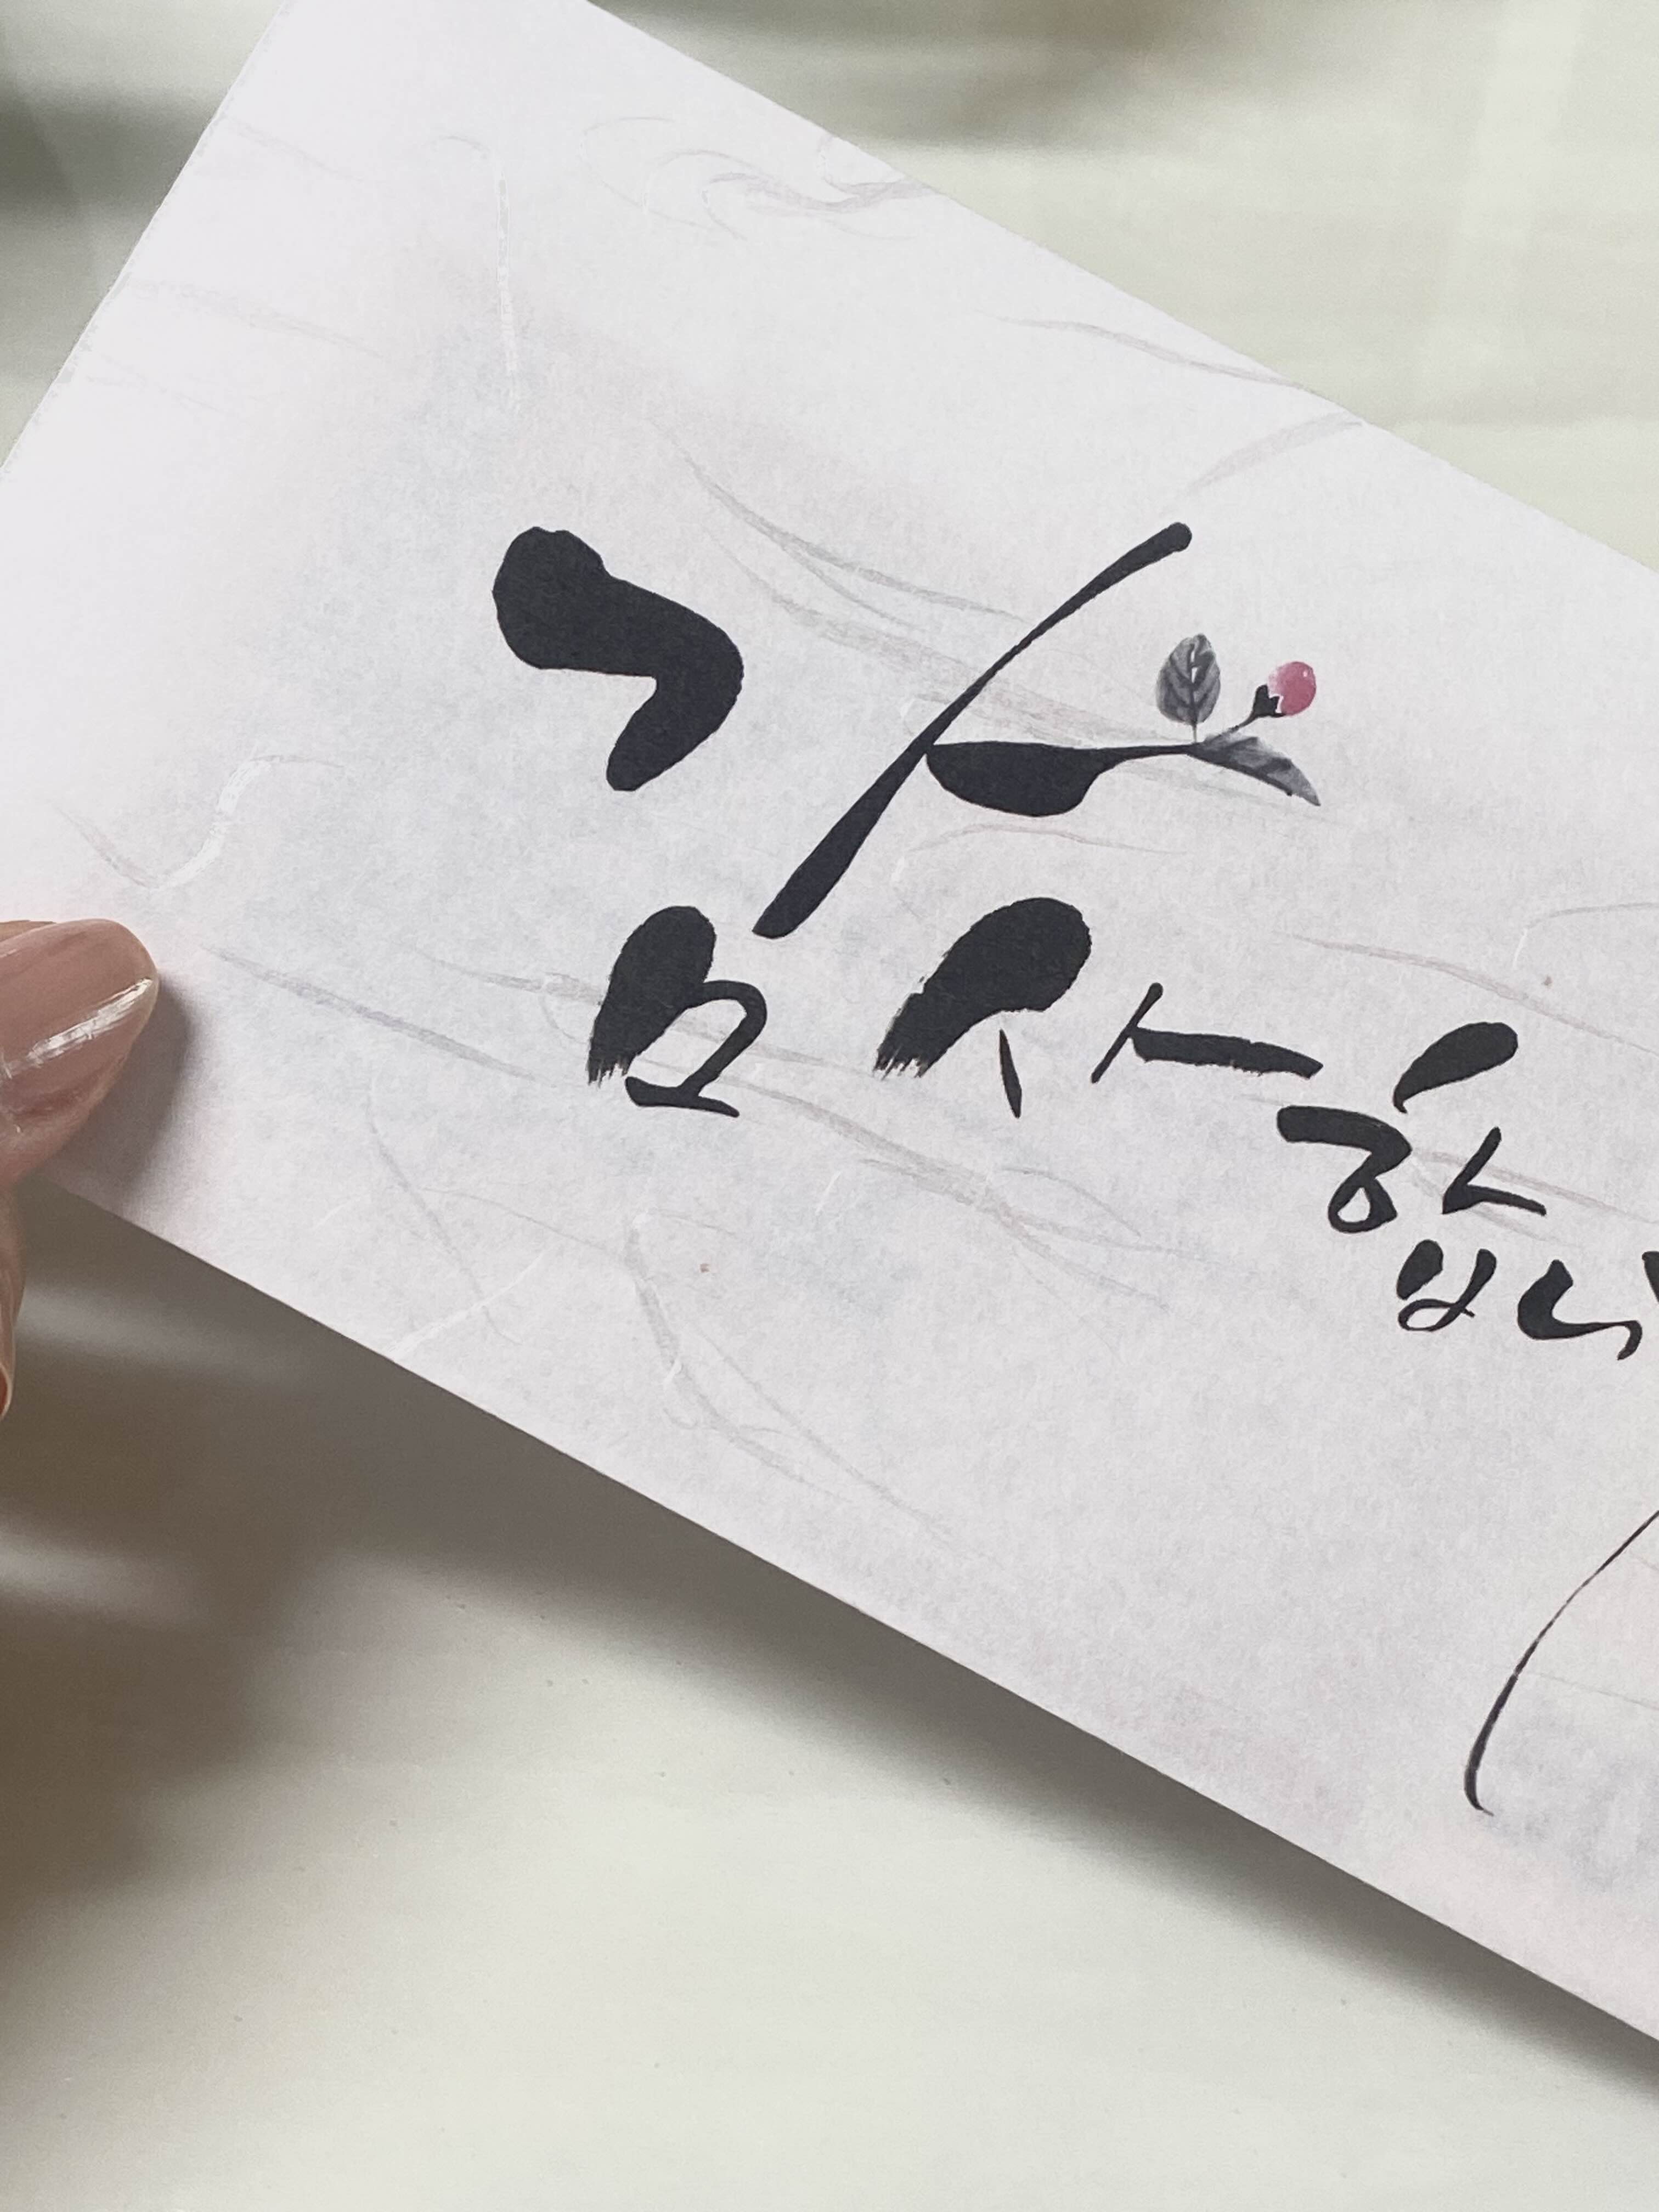 감사합니